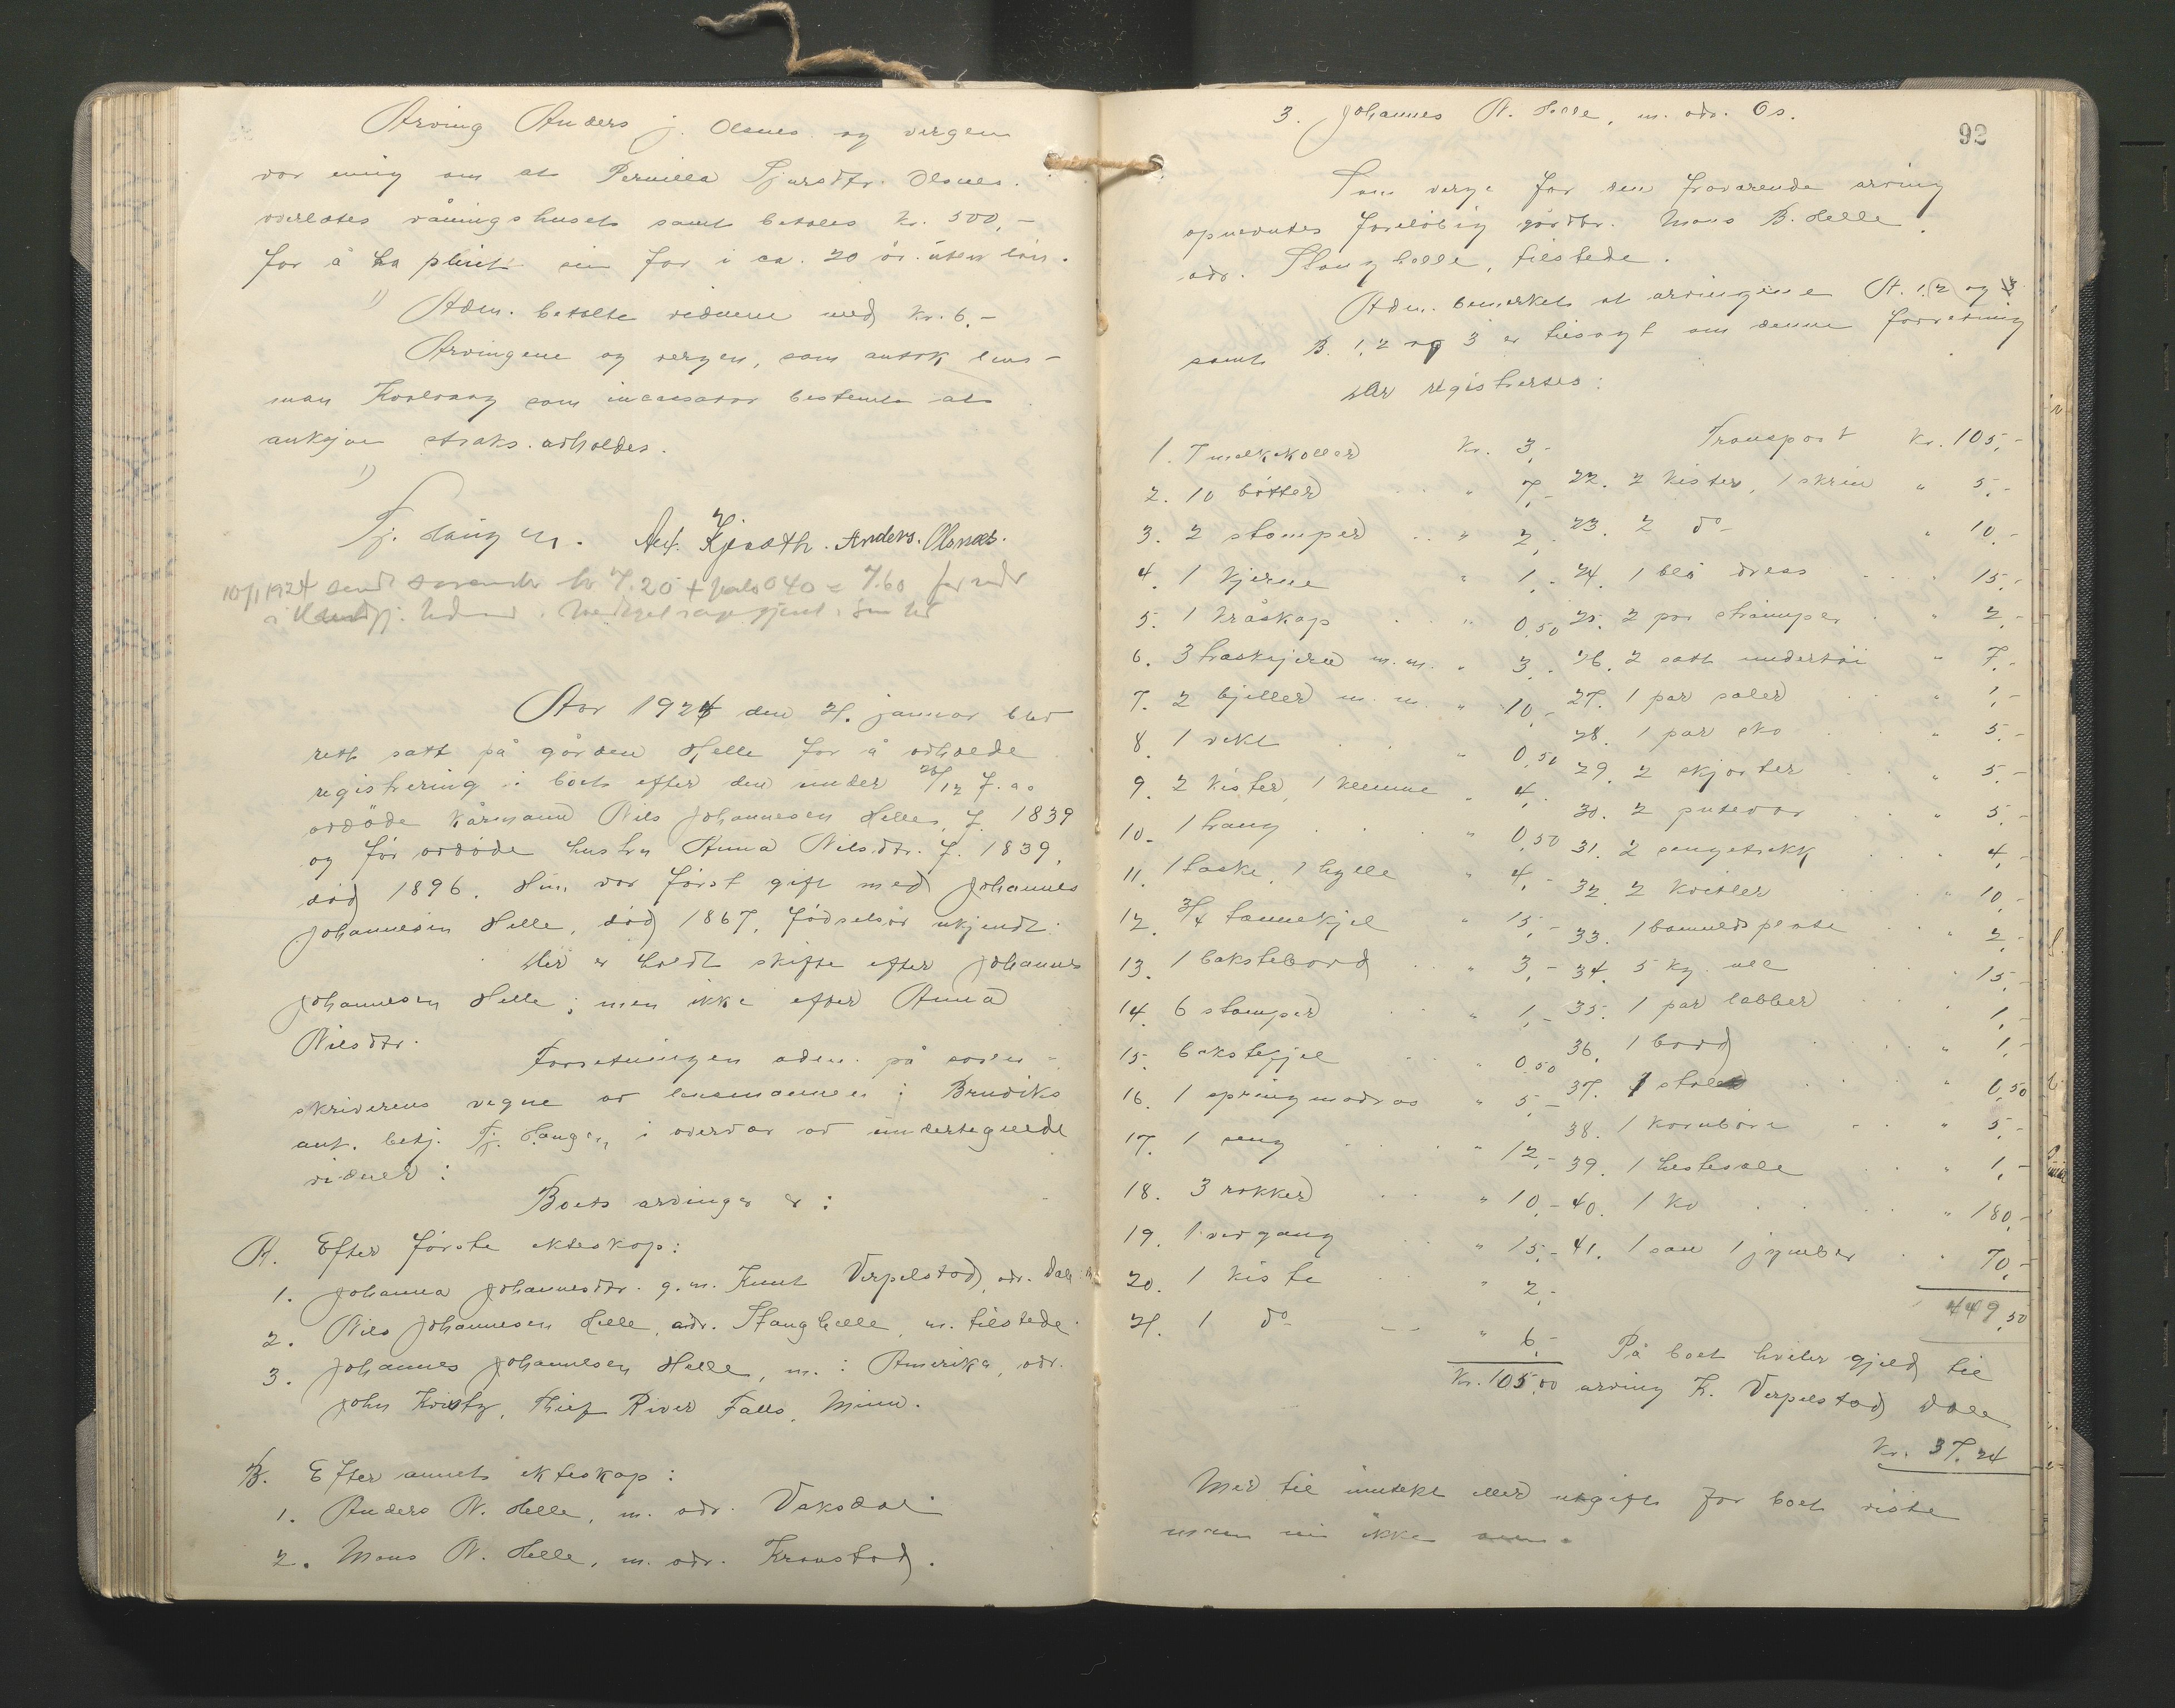 Arving Anders J. Olsnes og vergen
var enig om at Pernilla Sjursdtr. Olsnes.
overlates våningshuset samt betales kr. 500,-
for å ha pleiet sin far i ca. 20 år uten løn.
1) Adm. betalte vidnene med kr. 6,-
Arvingene og vergen, som antok lens-
man Kvalvaag som incassator bestemte at
auksjon straks avholdes.
1)
Tj. Haugen. Anders. Olsnæs.
10/1 1924 sendt kr. 7.20 + porto 0 40 = 7.60 for
Aar 1924 den 21. januar blev
rett satt på gården Helle for å avholde
registrering i boet efter den under 26/12 f. a.
avdøde kårmann Nils Johannesen Helle, f. 1839
og før avdøde hustru Anna Nilsdtr. f. 1839,
død 1896. Hun var først gift med Johannes
Johannesen Helle, død 1867, fødselsår ukjendt.
Der er holdt skifte efter Johannes
Johannesen Helle; men ikke efter Anna
Nilsdtr.
Forretningen adm. på soren-
skriverens vegne av lensmannen i Bruviks
aut. betj. Tj. Haugen i overvær av undertegnede
vidner:
Boets arvinger er:
A. Efter første ekteskap:
1. Johanna Johannesdtr. g. m. Knut Verpelstad, adr. Dale
2. Nils Johannesen Helle, adr. Stanghelle, m. tilstede.
3. Johannes Johannesen Helle, m. i Amerika, adr.
John Kvisty, Thief River Falls, Minn.
B. Efter annet ekteskap:
1. Anders N. Helle, m. adr. Vaksdal
2. Mons N. Helle, m. adr. Kronstad.
92
3. Johannes N. Helle, m. adr. Os.
Som verge for den fraværende arving
opnevntes foreløbig gårdbr. Mons B. Helle,
adr. Stanghelle, tilstede.
Adm. bemerket at arvingene A. 1, 2 og 3
samt B. 1, 2 og 3 er tilsagt om denne forretning
Der registrertes:
1. 7 melkekoller kr. 3,-
2. 10 bøtter " 7,-
3. 2 stamper " 2,-
4. 1 kjerne " 1,-
5. 1 kråskap " 0,50
6. 3 traskjerer m. m. " 3,-
7. 2 bjeller m. m. " 10,-
8. 1 vekt " 0,50
9. 2 kister, 1 klemme " 4,-
10. 1 traug " 0,50
11. 1 taske, 1 hylle " 4,-
12. 3/4 tønnekjel " 15,-
13. 1 bakstebord " 3,-
14. 6 stamper " 1,-
15. bakstefjel " 0,50
16. 1 springmadras " 5,-
17. 1 seng " 12,-
18. 3 rokker " 10,-
19. 1 vevgang " 15,-
20. 1 kiste " 2,-
21. 1 do " 6,-
Kr. 105,00
Transport kr. 105,-
22. 2 kister, 1 skrin " 5,-
23. 2 do " 10,-
24. 1 blå dress 15,-
25. 2 par strømper " 2,-
26. 2 sett undertøi " 7,-
27. 1 par saler " 1,-
28. 1 par sko " 5,-
29. 2 skjorter " 5,-
30. 2 putevar " 5,-
31. 2 sengetrekk " 4,-
32. 2 kvitler " 10,-
33. 1 bomuldsplate " 2,-
34. 5 kg. ull " 15,-
35. 1 par labber " 1,-
36. 1 bord " 1,-
37. 1 stol " 0,50
38. 1 kornbøre " 5,-
39. 1 hestesele " 1,-
40. 1 ko " 180,-
41. 1 sau 1 gymber 70,-
449,50
På boet hviler gjeld til
arving K. Verpelstad, Dale
Kr. 37,24
Mer til inntekt eller utgift for boet visste
man nu ikke